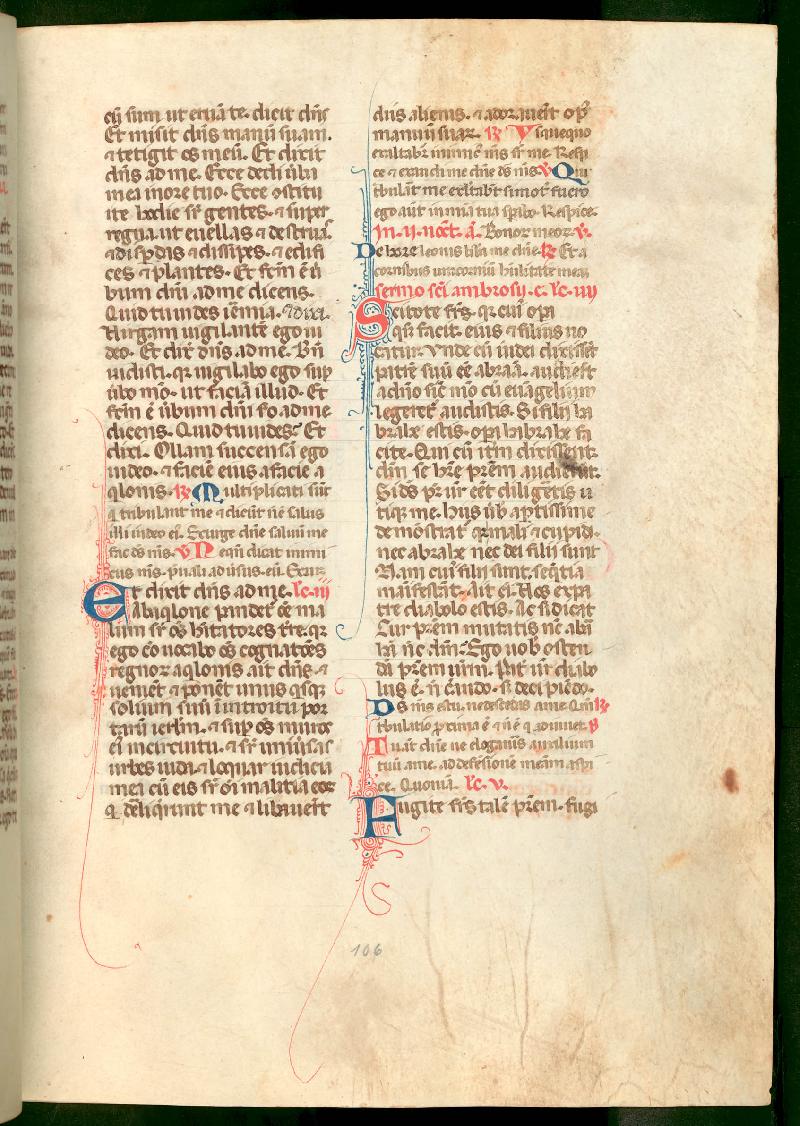 cū sum ut eruā te. dicit dn̄s
Et misit dn̄s manū suam.
⁊ tetigit os meū. Et dixit
dn̄s ad me. Ecce dedi ūba
mea in ore tuo. Ecce ꝯstitu
i te hodie sr̄ gentes. ⁊ super
regna. ut euellas ⁊ destruā.
⁊ disꝑdas ⁊ dissipes. ⁊ edifi
ces ⁊ plantes. Et fc̄m ē ū
bum dn̄i ad me dicens.
Quid tu uides iēmia. ⁊ dixi.
Virgam uigilantē ego ui
deo. Et dix̄ dn̄s ad me. Bn̄
uidisti. qr̄ uigilabo ego suꝑ
ūbo mō. ut faciā illud. Et
fc̄m ē ūbum dn̄i sc̄o ad me
dicens. Quid tu uides? Et
dixi. Ollam succensā ego
uideo. ⁊ faciē eius a facie a
qlonis. R̄ Multiplicati sūt
q̄ tribulant me ⁊ dicūt nē salus
illi in deo ei. Exurge dn̄e saluū me
fac ds̄ ms̄. V̄ Neqū dicat inimi
cus ms̄. p̄ualui adūsus. eū. Exur.
Et dixit dn̄s ad me. lc̄. iij
Ab aq̄lone pandet̄ oē ma
lum sr̄ oēs hītatores tr̄e. qr̄
ego ꝯuocabo oēs cognatōes
regnoꝝ aq̄lonis ait dn̄s. ⁊
uenient ⁊ ponēt unus q̄sq̄
solium suū ī introitu por
tarū ierlm̄. ⁊ suꝑ oēs muros
ei in circuitu. ⁊ sr̄ uniūsas
urbes iuda. ⁊ loquar iudicia
mea cū eis sr̄ oēi malitia eoꝝ
q̄ deliq̄runt me ⁊ libauerūt
diis alienis. ⁊ adorauer̄t opꝰ
manuū suaꝝ. R̄ Vsquequo
exaltabit̄ inimic̄ ms̄ sr̄ me. Respi
ce ⁊ exaudi me dn̄e ds̄ ms̄. V̄ Qui
tbulāt me exltabūt si mot̄ fuero
ego aut̄ in mīa tua sꝑabo. Respice.
In. ij. noct̄. a. Bonoꝝ meoꝝ. V̄.
De ore leonis liƀa me dn̄e. R̄ Et a
cornibus unicorniū hūilitatē meā
Sermo sc̄i ambrosij. c. lc̄. iiij
Scitote fr̄s. qr̄ cuiꝰ opa
q̄s facit. eius ⁊ filius no
catur. Vnde cū iudei dixissēt
patrē suū eē abraā. audiert̄
a dn̄o sic̄ mō cū euangelium
legeret̄ audistis. Si filij ha
brahe estis. opa habrahe fa
cite. Qui cū it̄m dixissent
dm̄ se hr̄e prēm audiert̄.
Si ds̄ pr̄ ur̄ eēt diligeretis u
tiqꝫ me. Hus ūƀ aptissime
demōstrat̄ qr̄ mali ⁊ cupidi.
nec abrahe nec dei filij sunt
Nam cuiꝰ filij sunt. seq̄tia
maīfestāt. Ait ei. Vos ex pa
tre diabolo estis. Ac si dicat
Cur prēm mutatis nc̄ abā
hā nc̄ dm̄. Ego uoƀ osten
dā prēm urm̄. Pat̄ ur̄ diabo
lus ē. n̄ c̄ando. s̄ decipiēdo.
Ds̄ ms̄ es tu. ne discedas a me. Qm̄ R̄
tbulatio ꝓxima ē ⁊ n̄ ē q̄ adiuuet. V̄
Tu aūt dn̄e ne elōgaueris auxilium
tuū a me. ad defēsionē meam aspi
ce. Quoniā. lc̄. v.
Fugite fr̄s talē prēm. fugi
106